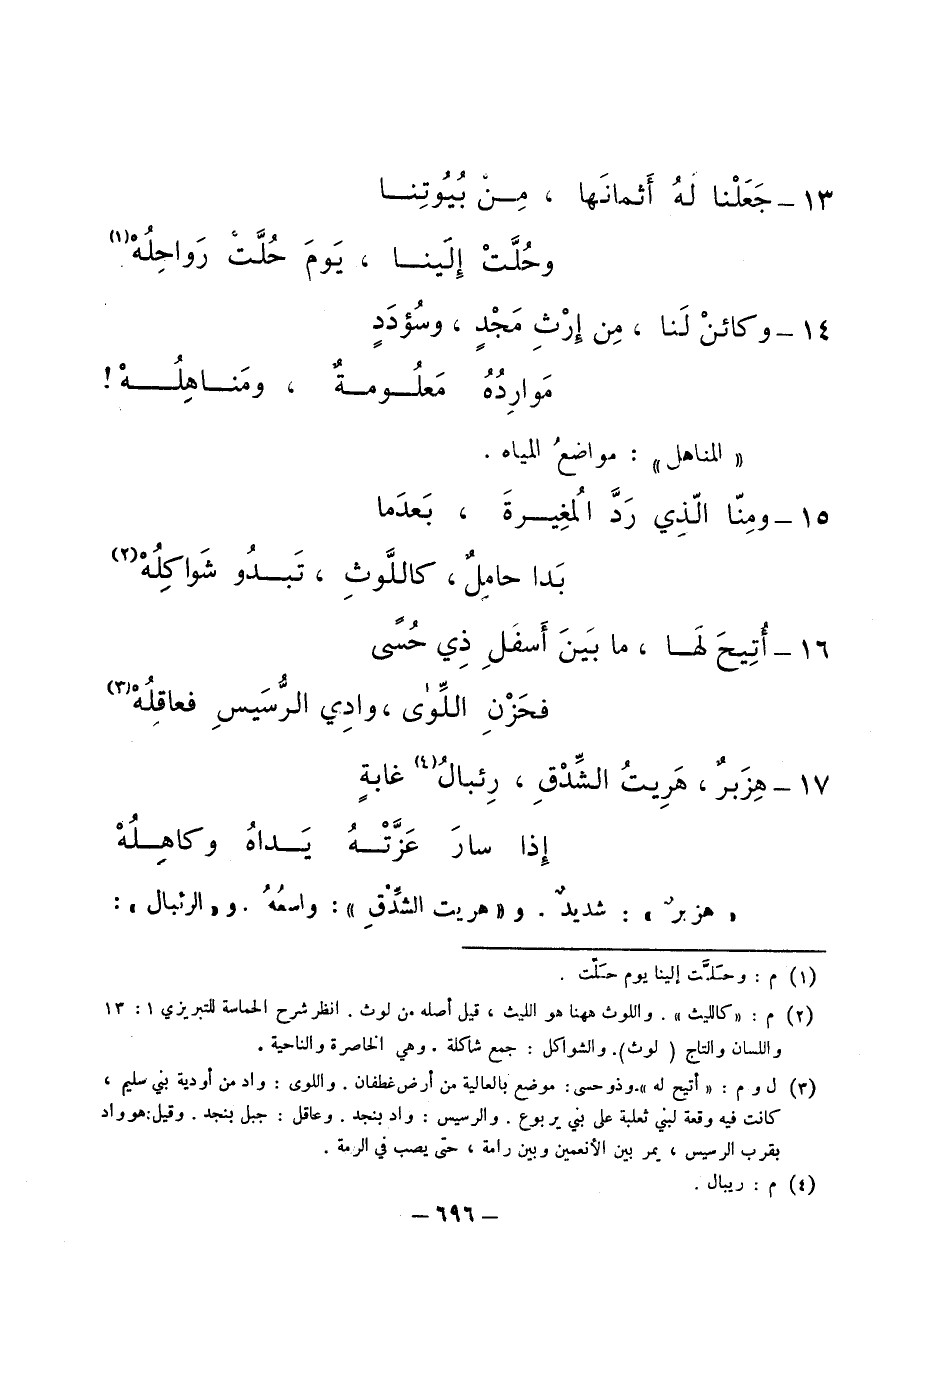 ١٣ – جَعَلْنا لَهُ أَثمانَها ، مِنْ بُيُوتِنا
وحُلَّتْ إِلَينا ، يَومَ حُلَّتْ رَواحِلُهْ(١)
١٤ – وكائنْ لَنا ، مِن إِرْثِ مَجْدٍ ، وسُؤدَدٍ
مَوارِدُهُ مَعلُومةٌ ، ومَناهِلُهْ !
« المناهل » : مواضعُ المياه .
١٥ – ومِنّا الّذِي رَدَّ المُغِيرةَ ، بَعدَما
بَدا حامِلٌ ، كاللَّوثِ ، تَبدُو شَواكِلُهْ(٢)
١٦ – أُتِيحَ لَها ، ما بَينَ أَسفَلِ ذِي حُسًى
فحَزْنِ اللِّوٰى ، وادِي الرُّسَيسِ فعاقِلُهْ(٣)
١٧ – هِزَبرٌ ، هَرِيتُ الشِّدْقِ ، رِئبالُ(٤) غابةٍ
إِذا سارَ عَزَّتْهُ يَداهُ وكاهِلُهْ
« هزبرٌ » : شديدٌ . و « هريت الشِّدْقِ » : واسعُهُ . و « الرئبال » :
(١) م : وحَلَّت إلينا يوم حَلّت .
(٢) م : « كالليث » . واللوث ههنا هو الليث ، قيل أصله من لوث . انظر شرح الحماسة للتبريزي ١ : ١٣
واللسان والتاج ( لوث ). والشواكل : جمع شاكلة . وهي الخاصرة والناحية .
(٣) ل و م : « أتيح له ».وذو حسى : موضع بالعالية من أرض غطفان . واللوى : واد من أودية بني سليم ،
كانت فيه وقعة لبني ثعلبة على بني يربوع . والرسيس : واد بنجد . وعاقل : جبل بنجد . وقيل:هو واد
بقرب الرسيس ، يمر بين الأنعمين وبين رامة ، حتى يصب في الرمة .
(٤) م : ريبال .
– ٦٩٦ –